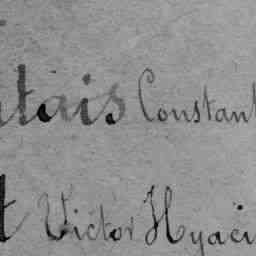 tais Constant
t Victor Hyaci